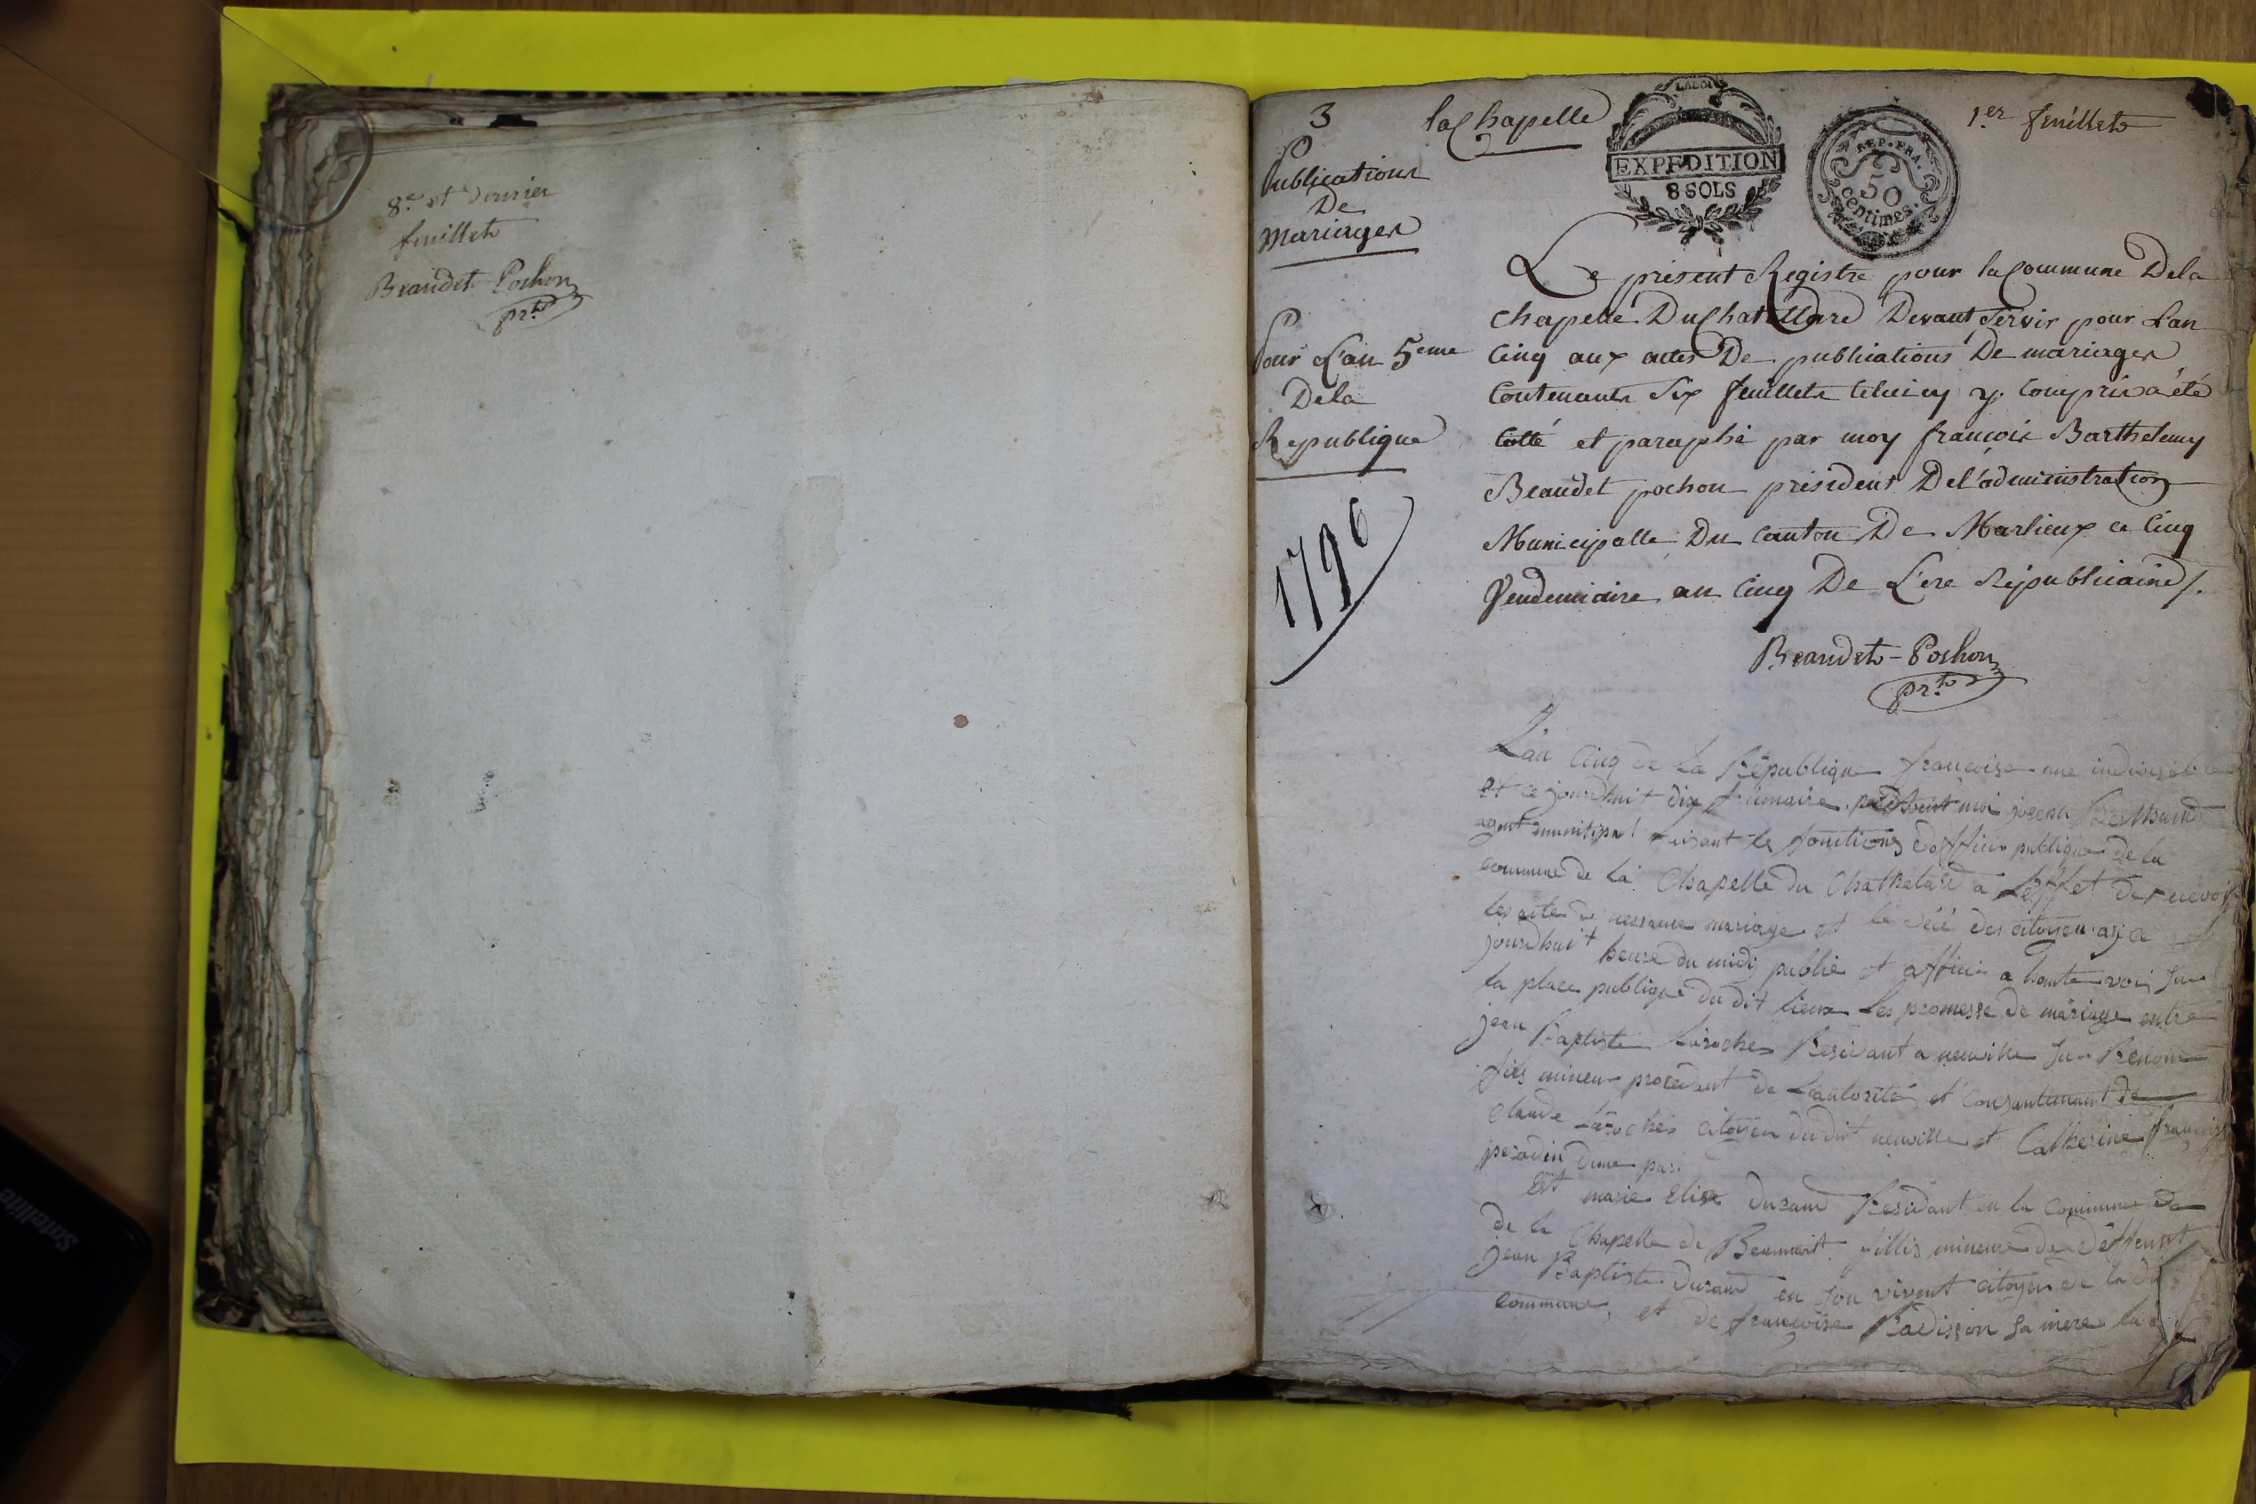 8.e et dernier
feuillet
Beaudet Pochon
prt
3
la Chapelle
LA LOI
EXPEDITION
8 SOLS
REP. FRA.
50
centimes.
1.er feuillet
Publications
De
Mariages
Pour L'an 5eme
De la
Republique
1796
Le présent Registre pour la Commune De la
Chapelle Du Chatellard Devant Servir pour L'an
Cinq aux actes De publications De mariages
Contenants Six feuillets Celuicy y Compris a été
Cotté et paraphé par moy françois Barthelemy
Beaudet pochon président De l'administration
Municipalle Du Canton De Marlieux ce Cinq
Vendemiaire an Cinq De L'ere Républicaine /.
Beaudet-Pochon
prt
L'an Cinq de la République françoise une indivisible
et ce jourdhuit dix frimaire moi joseph
agent municipal faisant les fonctions dofficier publique de la
commune de la Chapelle du Chathelard a Leffet de recevoir
les acte de nessance mariage et le décé des citoyen
jourdhuit heure du midi publié et affiché a haute voix sur
la place publique du dit lieux les promesse de mariage entre
jean Baptiste Laroches Residant a neuville sur Renom
fils mineur procédent de Lautorité et Consantement de
Claude Laroches citoyen du dit neuville et Catherine françoise
perodin dune par
Et marie Elise Durand Residant en la Commune de
de la Chapelle de fillis mineure de deffeunt
jean Baptiste Durand en son vivent citoyen de la
commune, et de françoise Radisson sa mere la